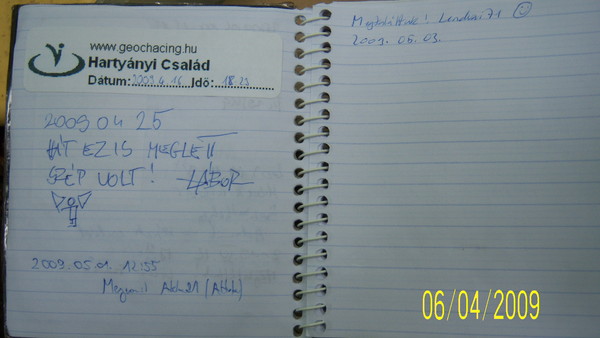 www.geochaching.hu
Hartyányi Család
Dátum: 2009.4.16 Idő: 18.23
2009 04 25
HÁT EZ IS MEGLETT
SZÉP VOLT! LÁBOR
2009.05.01. 12:55
Megvan!
Megtaláltuk! Lendvai71
2009. 05. 03.
06/04/2009